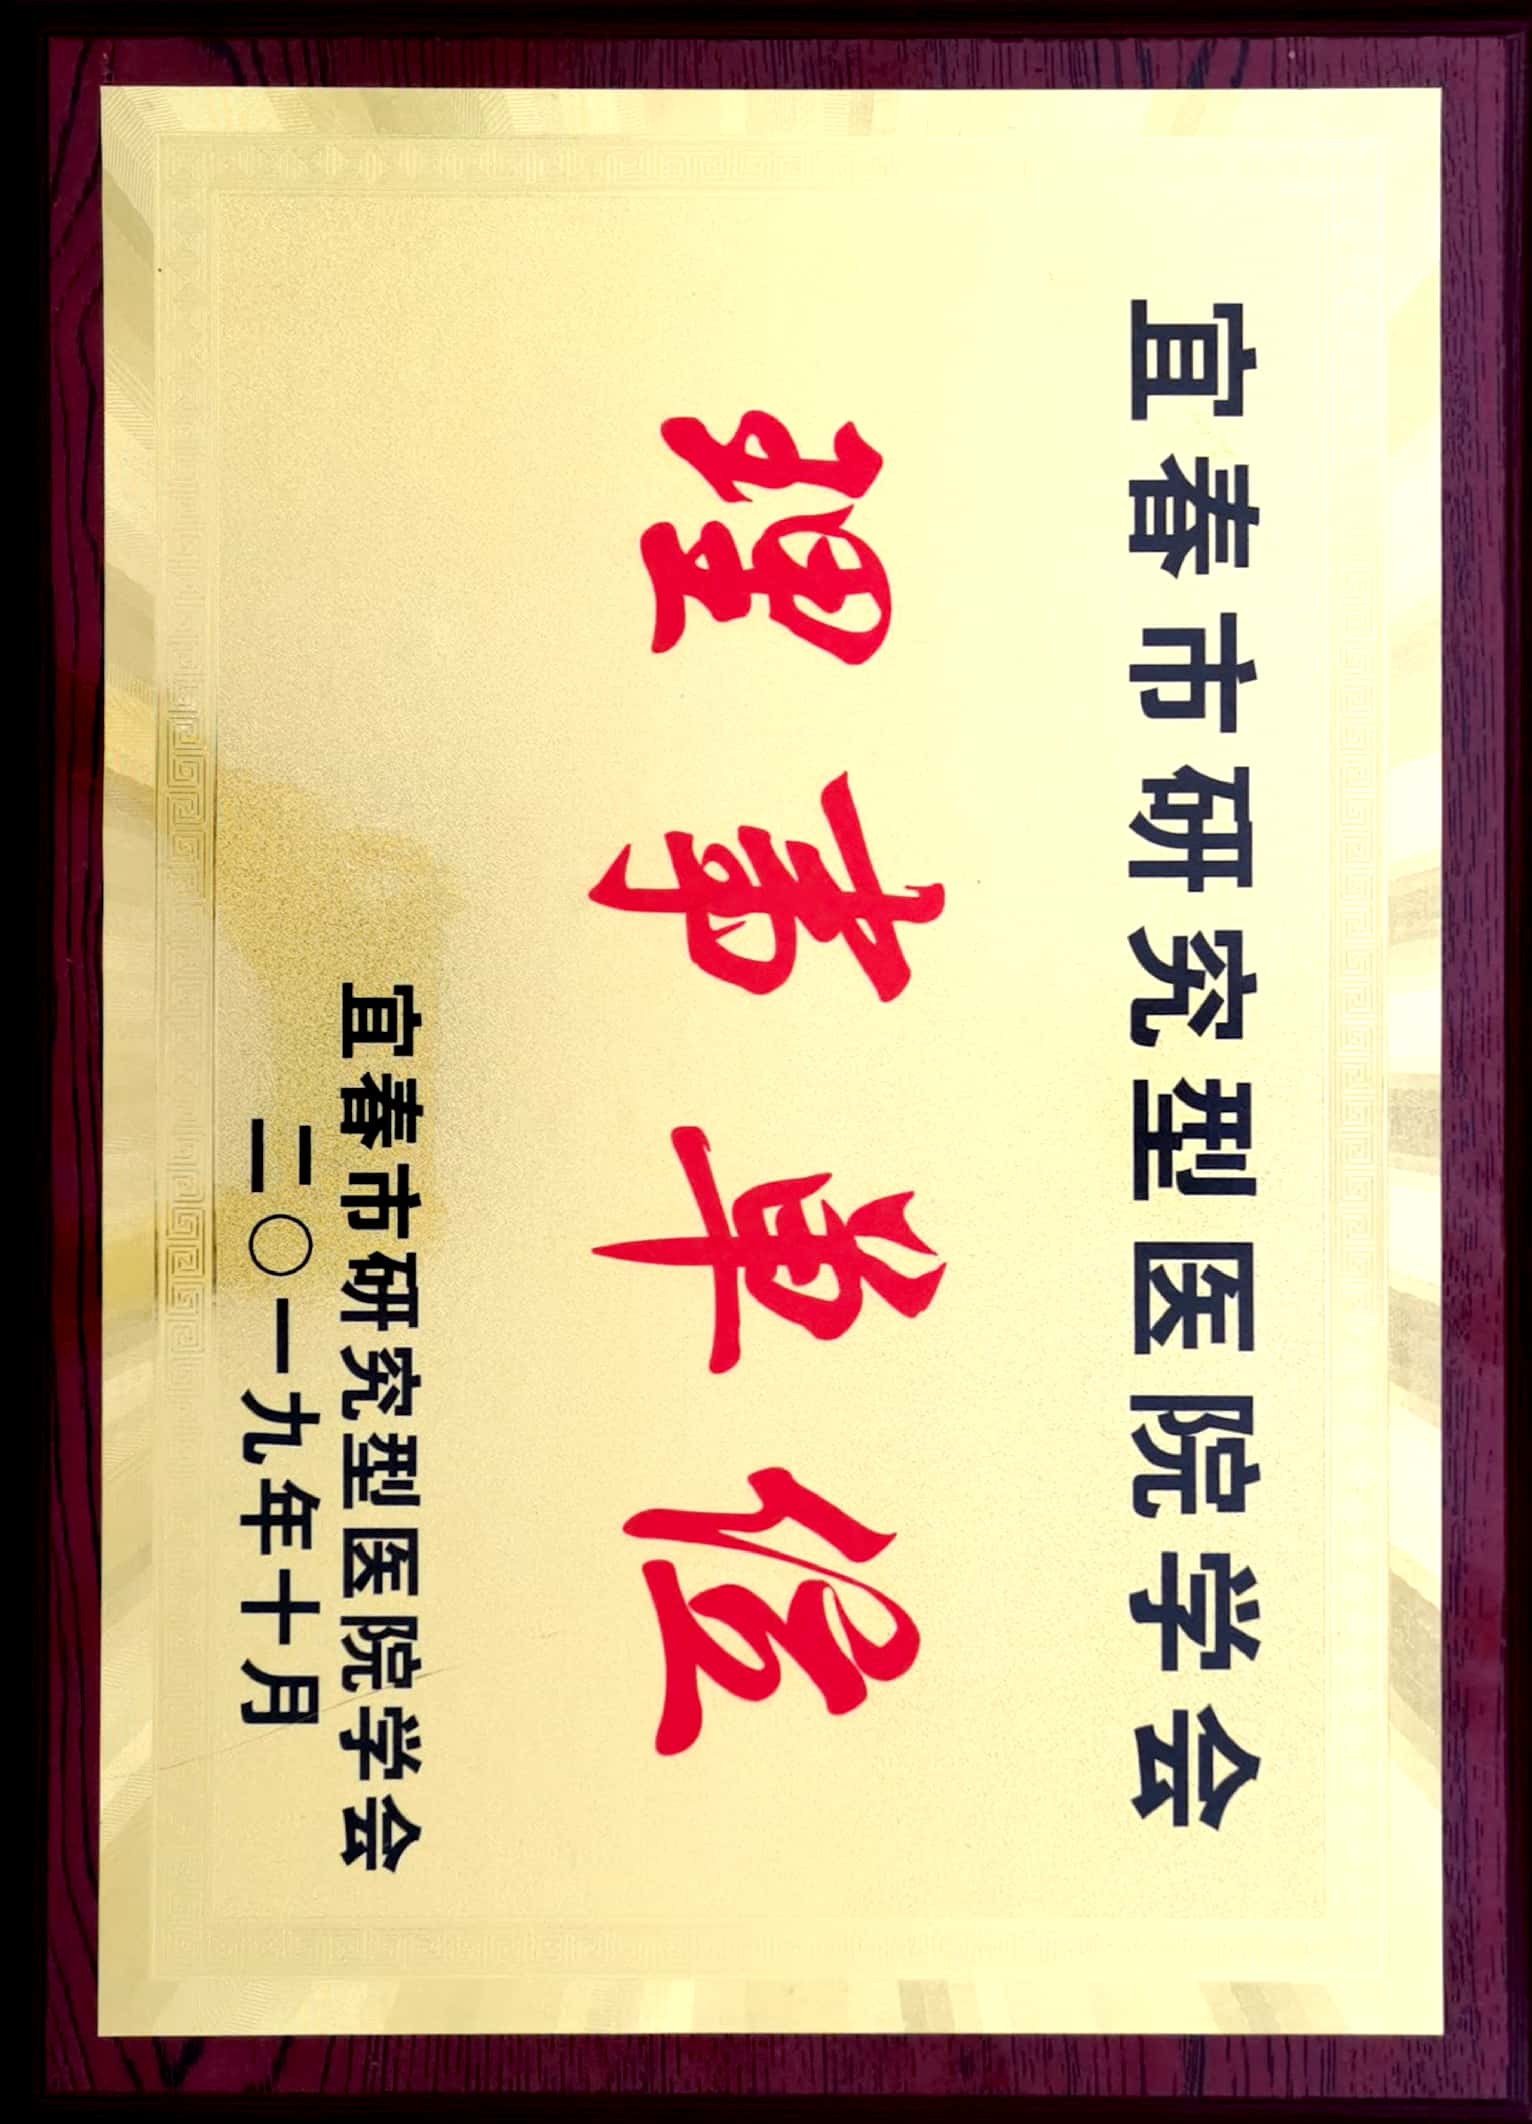 宜春市研究型医院学会
理事单位
宜春市研究型医院学会
二〇一九年十月